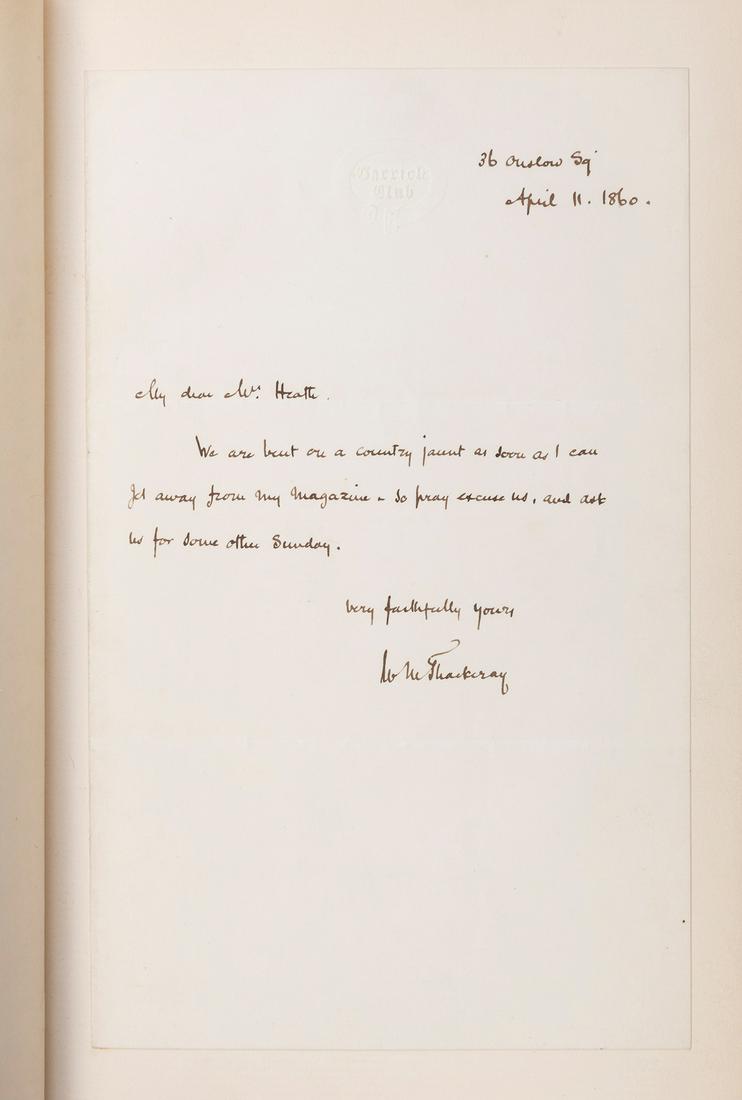 Garrick
Club
36 Onslow Sqr
April 11. 1860.
My dear Mrs. Heath.
We are bent on a country jaunt as soon as I can
get away from my Magazine - so pray excuse us, and ask
us for some other Sunday.
very faithfully yours
W M Thackeray